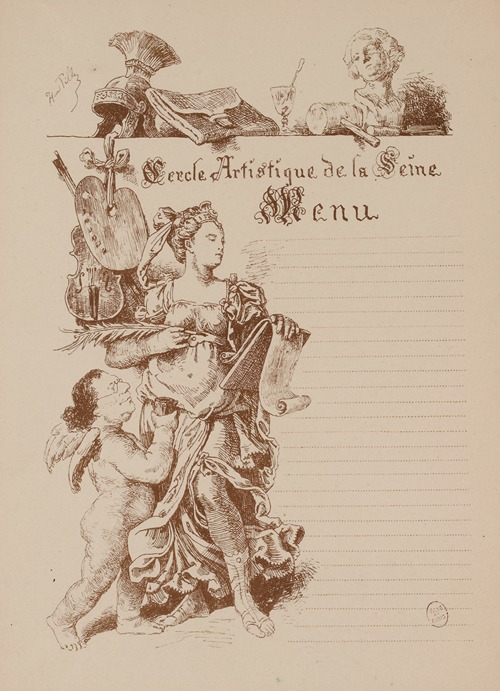 Cercle Artistique de la Seine
Menu